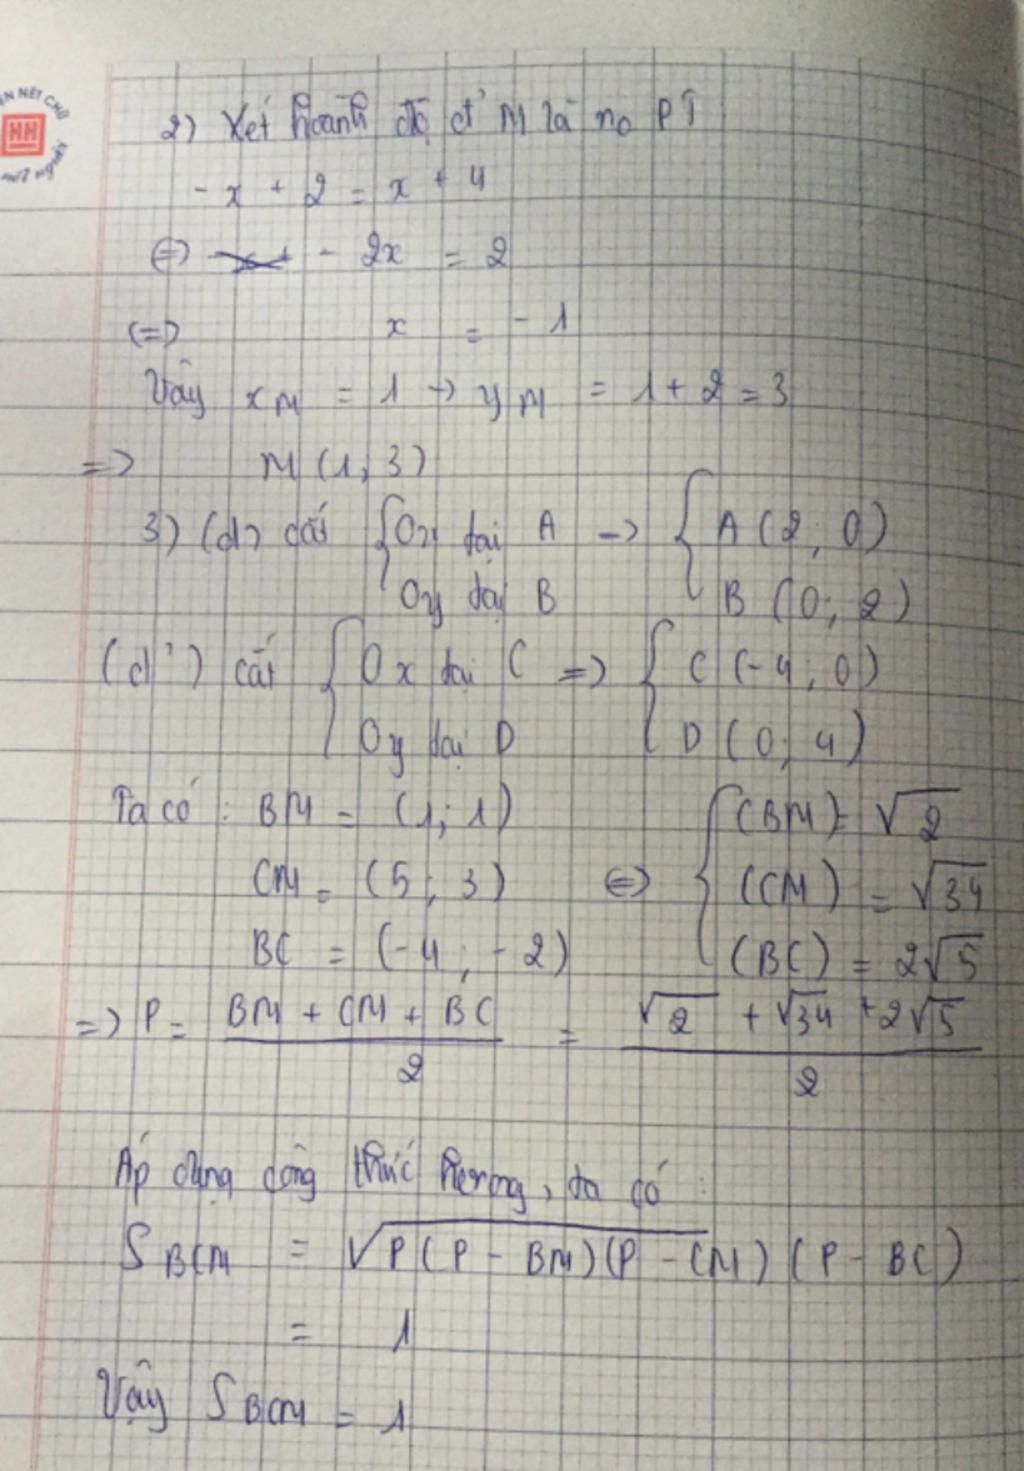 ỆN NÉT CHỮ
HH
2) Xét hoành độ đ' M là no PT
- x + 2 = x + 4
(=) - 2x = 2
(=) x = - 1
Vậy xM = 1 -> yM = 1 + 2 = 3
=> M (1; 3)
3) (d) cắt { Ox tại A -> { A (2; 0)
Oy tại B B (0; 2)
(d') cắt { Ox tại C => { C (-4; 0)
Oy tại D D (0; 4)
Ta có: BM = (1; 1) { (BM) = √2
CM = (5; 3) (=) (CM) = √34
BC = (-4; -2) (BC) = 2√5
=> P = (BM + CM + BC)/2 = (√2 + √34 + 2√5)/2
Áp dụng công thức herong, ta có:
S BCM = √P(P - BM)(P - CM)(P - BC)
= 1
Vậy S BCM = 1